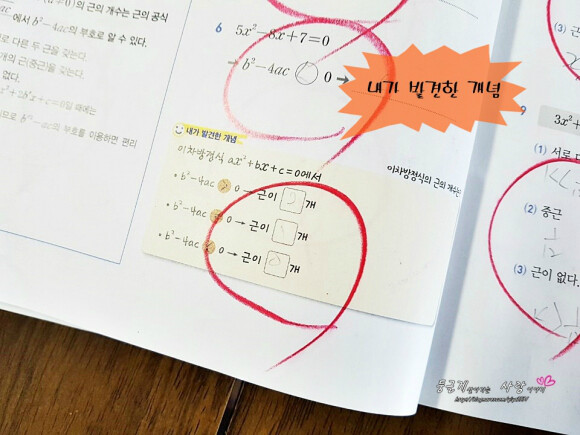 의 근의 개수는 근의 공식
에서 b²-4ac의 부호로 알 수 있다.
다른 두 근을 갖는다.
근(중근)을 갖는다.
없다.
일 때에는
부호를 이용하면 편리
6 5x²-8x+7=0
→ b²-4ac < 0 →
내가 발견한 개념
내가 발견한 개념
이차방정식 ax²+bx+c=0에서
이차방정식의 근의 개수는
• b²-4ac > 0 → 근이 2 개
• b²-4ac = 0 → 근이 1 개
• b²-4ac < 0 → 근이 0 개
(3) 근
9 3x²+
(1) 서로 다
(2) 중근
(3) 근이 없다.
둥근지 살아가는 사랑 이야기